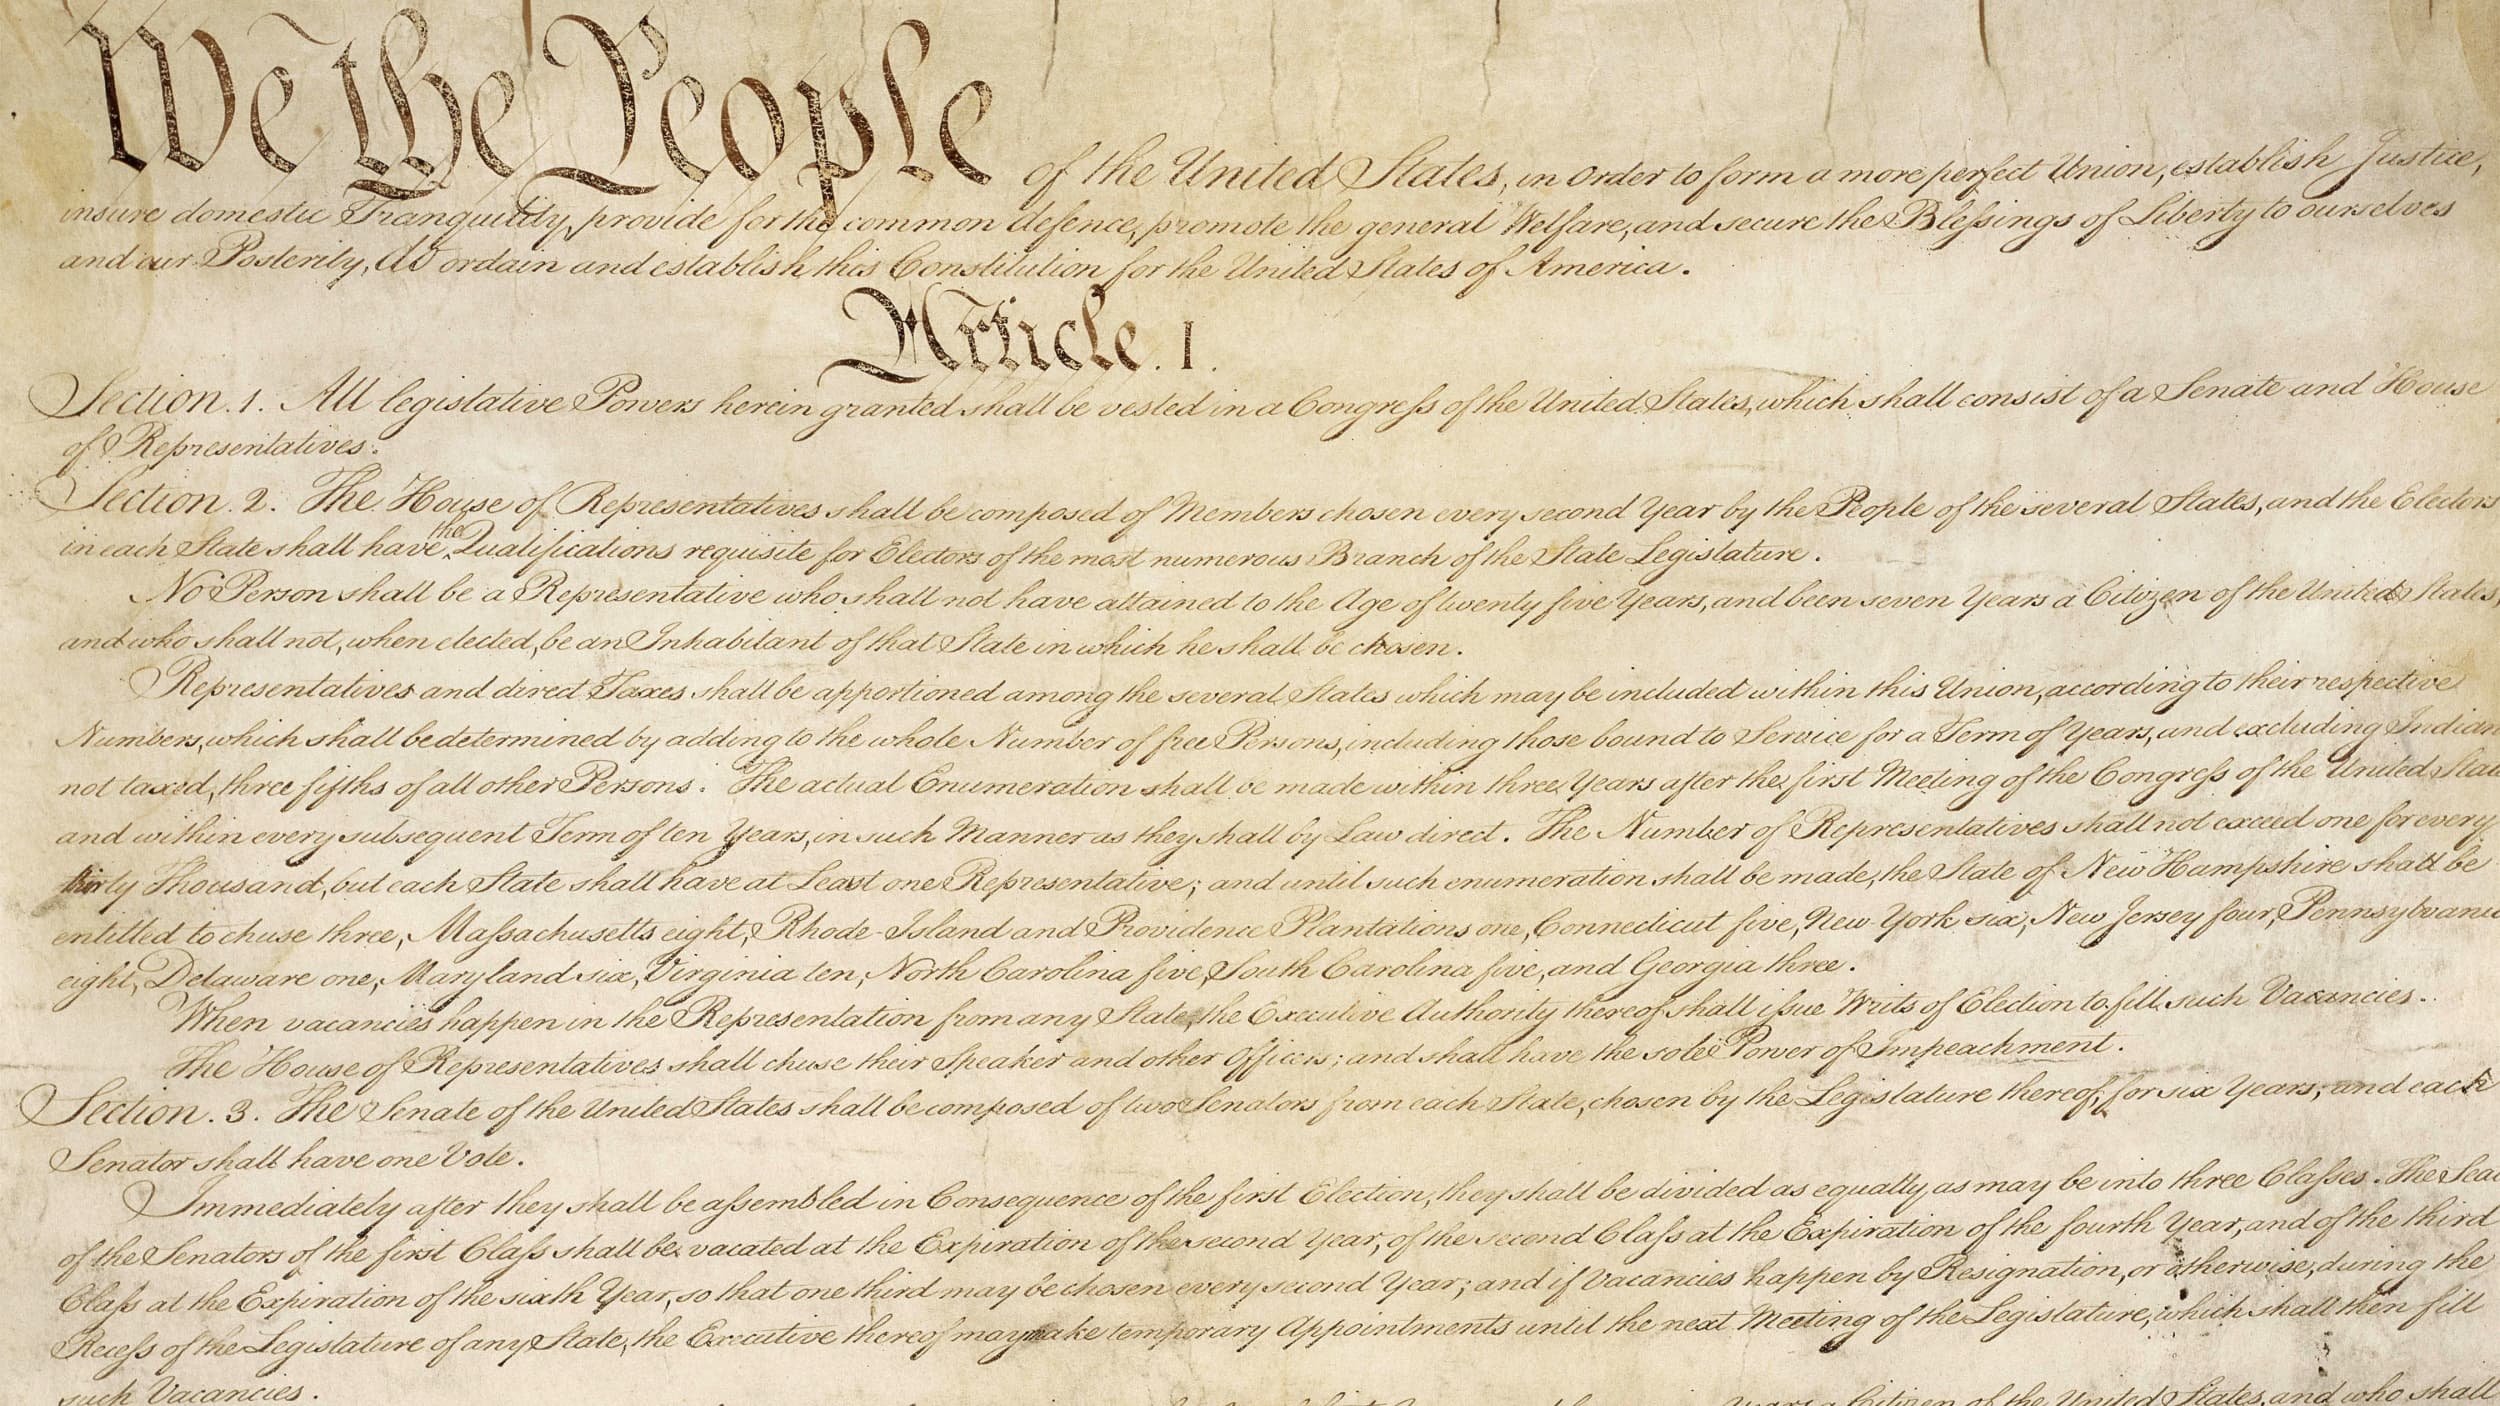 We the People of the United States, in Order to form a more perfect Union, establish Justice,
insure domestic Tranquility, provide for the common defence, promote the general Welfare, and secure the Blessings of Liberty to ourselves
and our Posterity, do ordain and establish this Constitution for the United States of America.
Article. I.
Section. 1. All legislative Powers herein granted shall be vested in a Congress of the United States, which shall consist of a Senate and House
of Representatives.
Section. 2. The House of Representatives shall be composed of Members chosen every second Year by the People of the several States, and the Electors
in each State shall have the Qualifications requisite for Electors of the most numerous Branch of the State Legislature.
No Person shall be a Representative who shall not have attained to the Age of twenty five Years, and been seven Years a Citizen of the United States,
and who shall not, when elected, be an Inhabitant of that State in which he shall be chosen.
Representatives and direct Taxes shall be apportioned among the several States which may be included within this Union, according to their respective
Numbers, which shall be determined by adding to the whole Number of free Persons, including those bound to Service for a Term of Years, and excluding Indian
not taxed, three fifths of all other Persons. The actual Enumeration shall be made within three Years after the first Meeting of the Congress of the United State
and within every subsequent Term of ten Years, in such Manner as they shall by Law direct. The Number of Representatives shall not exceed one for every
thirty Thousand, but each State shall have at Least one Representative; and until such enumeration shall be made, the State of New Hampshire shall be
entitled to chuse three, Massachusetts eight, Rhode-Island and Providence Plantations one, Connecticut five, New-York six, New Jersey four, Pennsylvania
eight, Delaware one, Maryland six, Virginia ten, North Carolina five, South Carolina five, and Georgia three.
When vacancies happen in the Representation from any State, the Executive Authority thereof shall issue Writs of Election to fill such Vacancies.
The House of Representatives shall chuse their Speaker and other Officers; and shall have the sole Power of Impeachment.
Section. 3. The Senate of the United States shall be composed of two Senators from each State, chosen by the Legislature thereof, for six Years; and each
Senator shall have one Vote.
Immediately after they shall be assembled in Consequence of the first Election, they shall be divided as equally as may be into three Classes. The Sea
of the Senators of the first Class shall be vacated at the Expiration of the second Year, of the second Class at the Expiration of the fourth Year, and of the third
Class at the Expiration of the sixth Year, so that one third may be chosen every second Year; and if Vacancies happen by Resignation, or otherwise, during the
Recess of the Legislature of any State, the Executive thereof may make temporary Appointments until the next Meeting of the Legislature, which shall then fill
such Vacancies.
Years a Citizen of the United States, and who shall